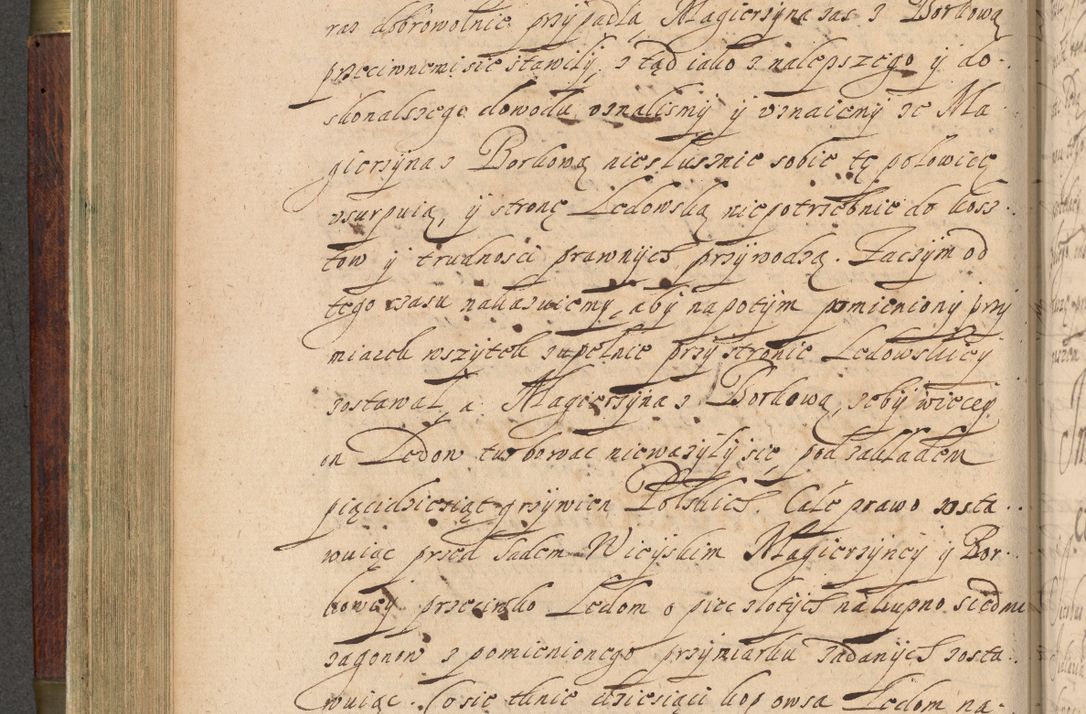 raz dobrowolnie przypadła, Magierzyna zas z Borkową
przeciwnemi sie stawiły, z tąd iako z nalepszego y do-
skonalszego dowodu uznalismy y uznaiemy ze Ma-
gierzyna z Borkową niesłusznie sobie tę połowicę
usurpuią, y stronę Ledowską niepotrzebnie do kosz-
tow y trudnosci prawnych przywodzą. Zaczym od
tego czasu nakazuiemy, aby napotym pomieniony przy
miarek wszytek zupełnie przy stronie Ledowskiey
zostawał, a Magierzyna z Borkową, zeby więcey
on Ledow turbowac nieważyły się, pod zakładem
pięcidziesiąt grzywien Polskich. Całe prawo zosta-
wuiąc przed Sadem Wieyskim Magierzyncy y Bor-
kowey przeciwko Ledom o pięc złotych nakupno siedmi
zagonow z pomienionego przymiarku zadanych zosta-
wuiąc. Co sie tknie dziesiąci kop owsa Ledom na-